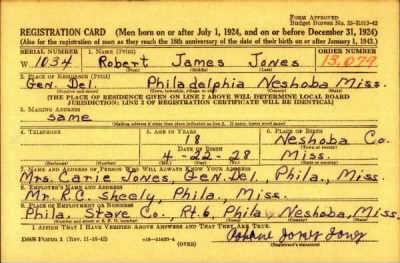 FORM APPROVED
Budget Bureau No. 33-R012-42
REGISTRATION CARD (Men born on or after July 1, 1924, and on or before December 31, 1924)
(Also for the registration of men as they reach the 18th anniversary of the date of their birth on or after January 1, 1943.)
SERIAL NUMBER 1. NAME (Print) ORDER NUMBER
W 1034 Robert James Jones 13,079
(First) (Middle) (Last)
2. PLACE OF RESIDENCE (Print)
Gen. Del. Philadelphia Neshoba Miss.
[THE PLACE OF RESIDENCE GIVEN ON LINE 2 ABOVE WILL DETERMINE LOCAL BOARD
JURISDICTION; LINE 2 OF REGISTRATION CERTIFICATE WILL BE IDENTICAL]
3. MAILING ADDRESS
same
[Mailing address if other than place indicated on line 2. If same, insert word same]
4. TELEPHONE 5. AGE IN YEARS 6. PLACE OF BIRTH
18 Neshoba Co.
DATE OF BIRTH
4-22-28 Miss.
7. NAME AND ADDRESS OF PERSON WHO WILL ALWAYS KNOW YOUR ADDRESS
Mrs. Carie Jones, Gen. Del. Phila., Miss.
8. EMPLOYER'S NAME AND ADDRESS
Mr. R.C. Sheely, Phila., Miss.
9. PLACE OF EMPLOYMENT OR BUSINESS
Phila. Stave Co., Rt. 6, Phila Neshoba, Miss.
I AFFIRM THAT I HAVE VERIFIED ABOVE ANSWERS AND THAT THEY ARE TRUE.
DSS Form 1 (Rev. 11-16-42) (OVER) (Registrant's signature)